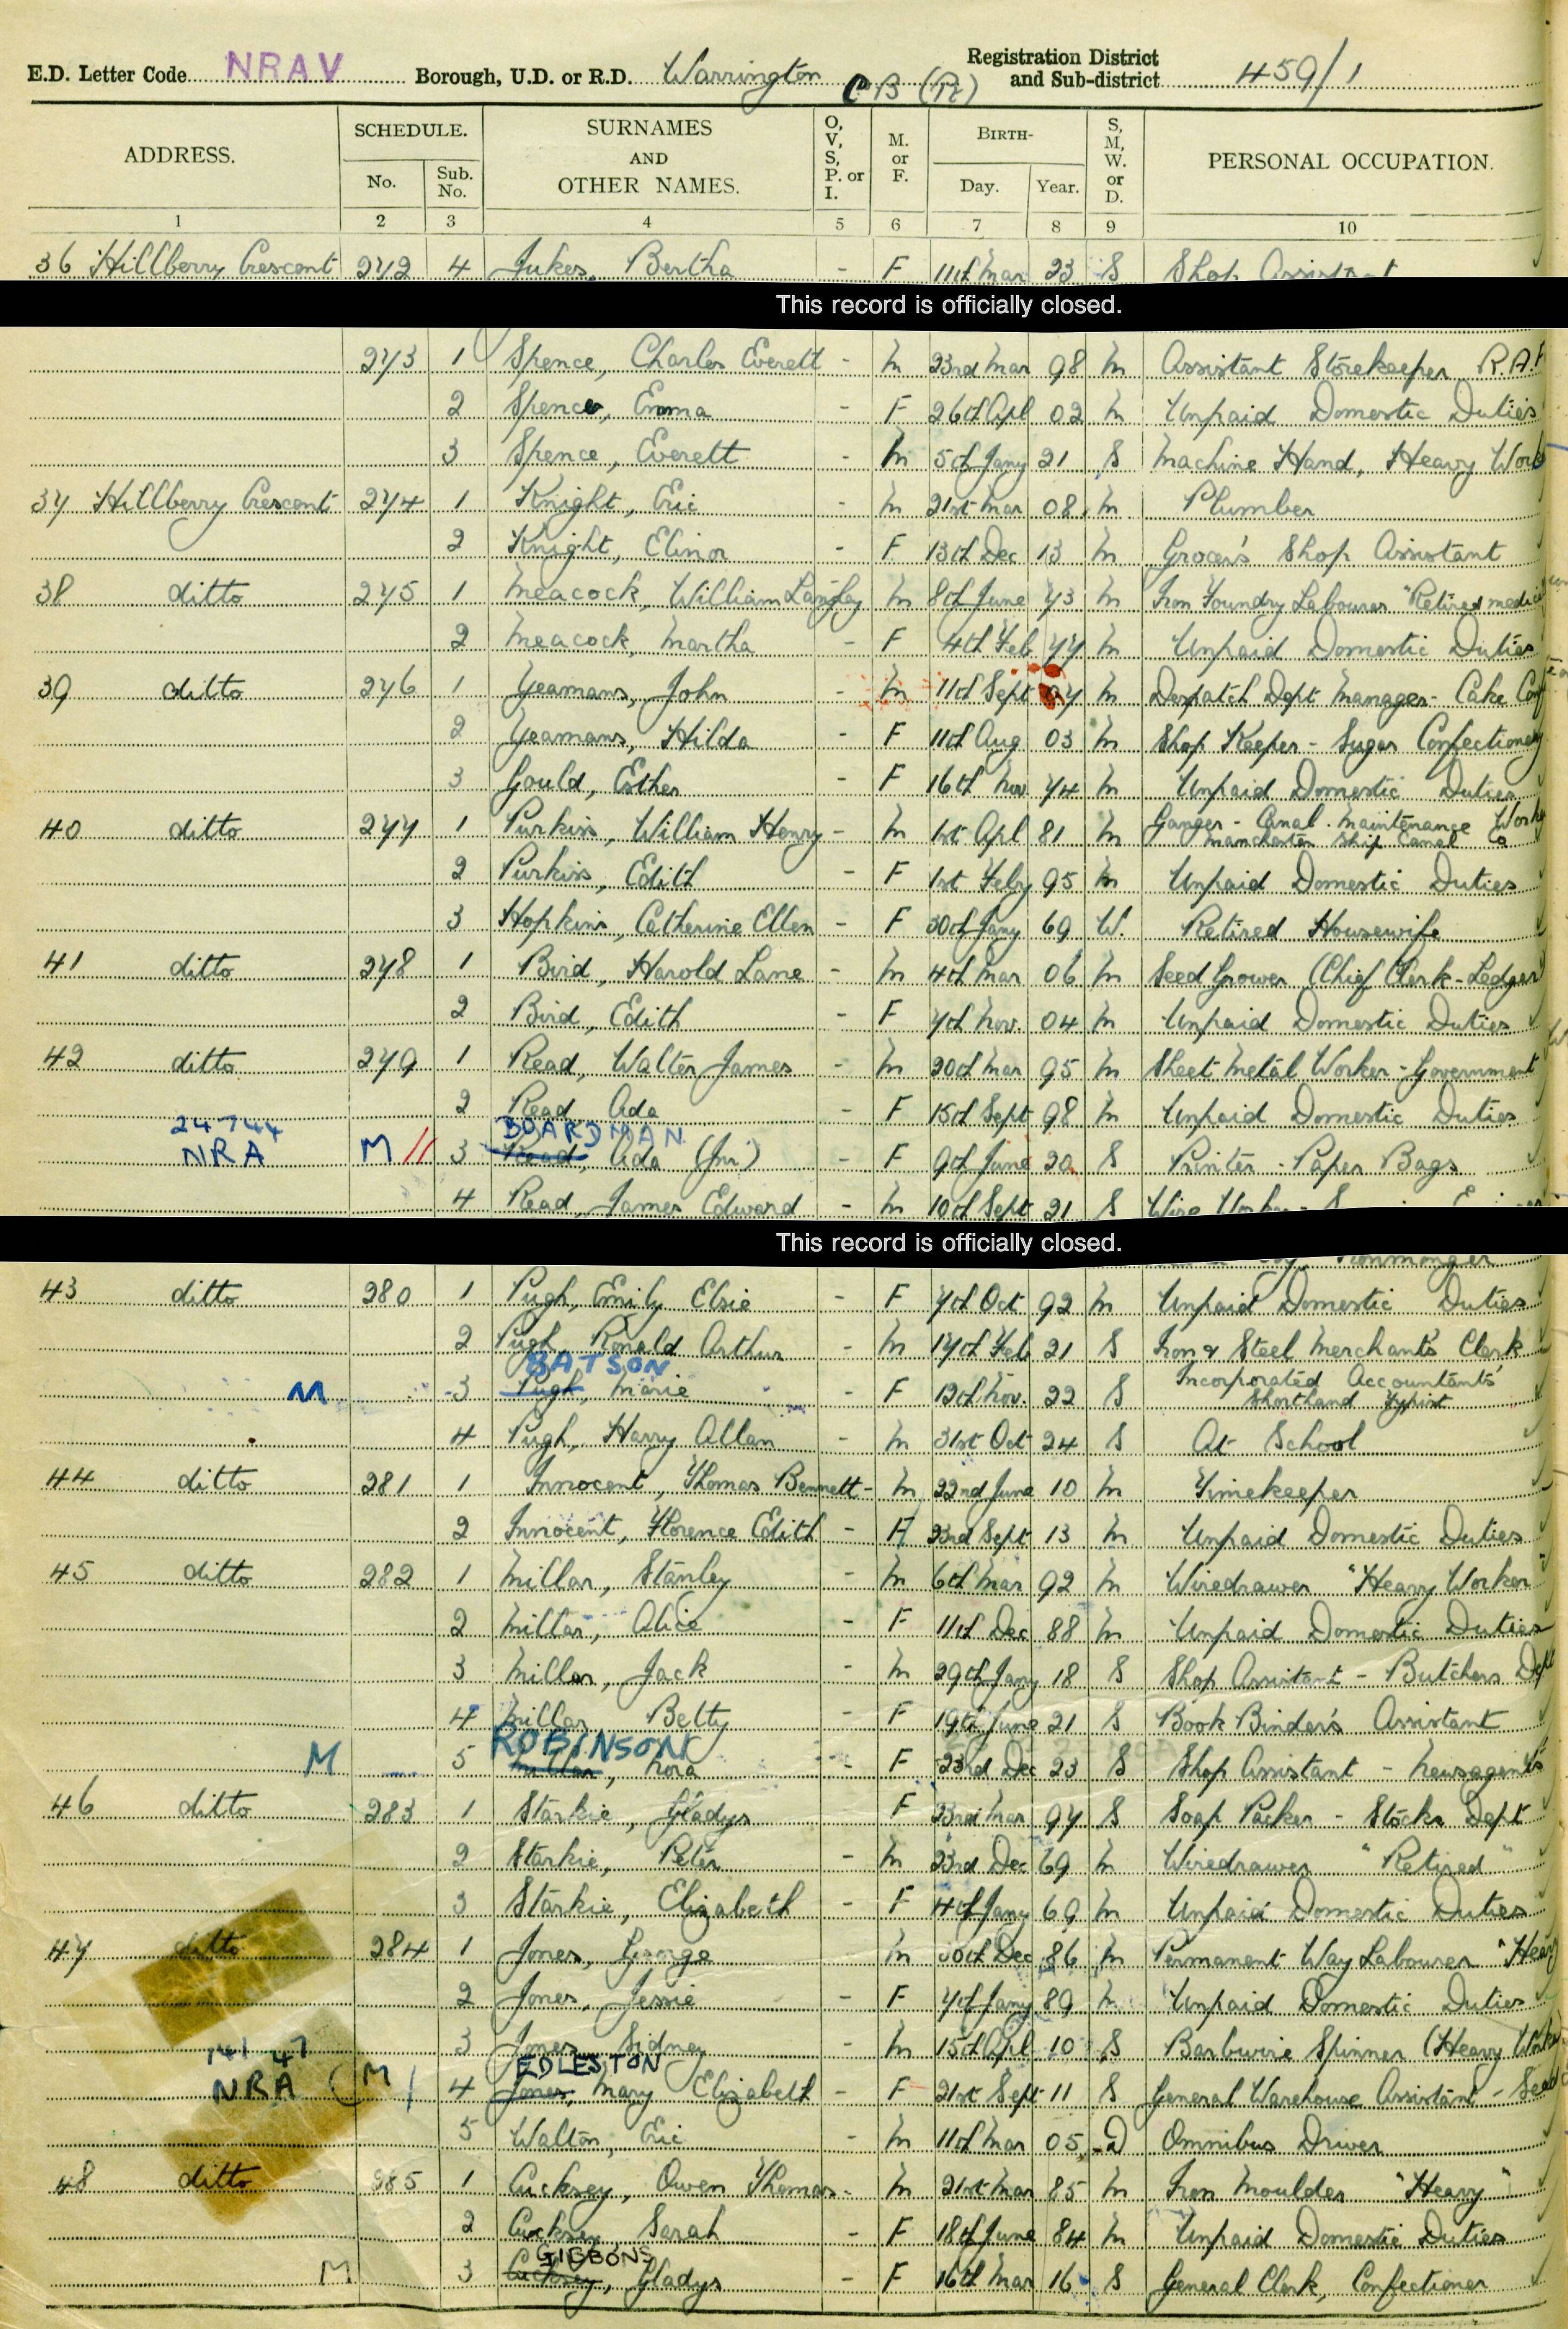 E.D. Letter Code NRAV Borough, U.D. or R.D. Warrington CB (Pt) Registration District and Sub-district 459/1
ADDRESS. SCHEDULE. No. Sub. No. SURNAMES AND OTHER NAMES. O, V, S, P. or I. M. or F. BIRTH- Day. Year. S, M, W. or D. PERSONAL OCCUPATION.
1 2 3 4 5 6 7 8 9 10
36 Hillberry Crescent 272 4 Jukes, Bertha - F 11th Mar 23 S Shop Assistant
This record is officially closed.
273 1 Spence, Charles Everett - M 23rd Mar 98 M Assistant Storekeeper R.A.F
2 Spence, Emma - F 26th Apl 02 M Unpaid Domestic Duties
3 Spence, Everett - M 5th Jany 21 S Machine Hand, Heavy Work
37 Hillberry Crescent 274 1 Knight, Eric - M 21st Mar 08 M Plumber
2 Knight, Elinor - F 13th Dec 13 M Grocer's Shop Assistant
38 ditto 275 1 Meacock, William Langley M 8th June 73 M Iron Foundry Labourer "Retired medic
2 Meacock, Martha - F 4th Feb 77 M Unpaid Domestic Duties
39 ditto 276 1 Yeamans, John - M 11th Sept 97 M Despatch Dept Manager - Cake Conf
2 Yeamans, Hilda - F 11th Aug 03 M Shop Keeper - Sugar Confectionery
3 Gould, Esther - F 16th Nov 74 M Unpaid Domestic Duties
40 ditto 277 1 Purkiss, William Henry - M 1st Apl 81 M Ganger - Canal Maintenance Work
Manchester Ship Canal Co
2 Purkiss, Edith - F 1st Feby 95 M Unpaid Domestic Duties
3 Hopkins, Catherine Ellen - F 30th Jany 69 W. Retired Housewife
41 ditto 278 1 Bird, Harold Lane - M 4th Mar 06 M Seed Grower (Chief Clerk - Ledger)
2 Bird, Edith - F 7th Nov. 04 M Unpaid Domestic Duties
42 ditto 279 1 Read, Walter James - M 20th Mar 95 M Sheet Metal Worker - Government
2 Read Ada - F 15th Sept 98 M Unpaid Domestic Duties
24744 BOARDMAN
NRA M // 3 Read, Ada (Jnr) - F 9th June 20 S Printer - Paper Bags
4 Read, James Edward - M 10th Sept 21 S Wire
This record is officially closed.
Ironmonger
43 ditto 280 1 Pugh, Emily Elsie - F 7th Oct 92 M Unpaid Domestic Duties
2 Pugh, Ronald Arthur - M 17th Feb 21 S Iron & Steel Merchants Clerk
BATSON
M 3 Pugh, Marie - F 12th Nov. 22 S Incorporated Accountants'
Shorthand Typist
4 Pugh, Harry Allan - M 31st Oct 24 S At School
44 ditto 281 1 Innocent, Thomas Bennett - M 22nd June 10 M Timekeeper
2 Innocent, Florence Edith - F 23rd Sept 13 M Unpaid Domestic Duties
45 ditto 282 1 Millar, Stanley - M 6th Mar 92 M Wiredrawer "Heavy Worker"
2 Millar, Alice - F 11th Dec 88 M Unpaid Domestic Duties
3 Millar, Jack - M 29th Jany 18 S Shop Assistant - Butchers Dept
4 Millar Betty - F 19th June 21 S Book Binder's Assistant
ROBINSON
M 5 Millar, Nora - F 23rd Dec 23 S Shop Assistant - Newsagents
46 ditto 283 1 Starkie, Gladys - F 23rd Mar 97 S Soap Packer - Stocks Dept
2 Starkie, Peter - M 23rd Dec 69 M Wiredrawer "Retired"
3 Starkie, Elizabeth - F 4th Jany 69 M Unpaid Domestic Duties
47 ditto 284 1 Jones, George M 30th Dec 86 M Permanent Way Labourer "Heavy
2 Jones, Jessie - F 7th Jany 89 M Unpaid Domestic Duties
3 Jones, Sidney - M 15th Apl 10 S Barbwire Spinner (Heavy Work)
EDLESTON
NRA (M/ 4 Jones, Mary Elizabeth - F 21st Sept 11 S General Warehouse Assistant - Seed
5 Walton, Eric - M 11th Mar 05 D Omnibus Driver
48 ditto 285 1 Cucksey, Owen Thomas - M 21st Mar 85 M Iron Moulder "Heavy"
2 Cucksey Sarah - F 18th June 84 M Unpaid Domestic Duties
GIBBONS
M 3 Cucksey, Gladys - F 16th Mar 16 S General Clerk, Confectioner